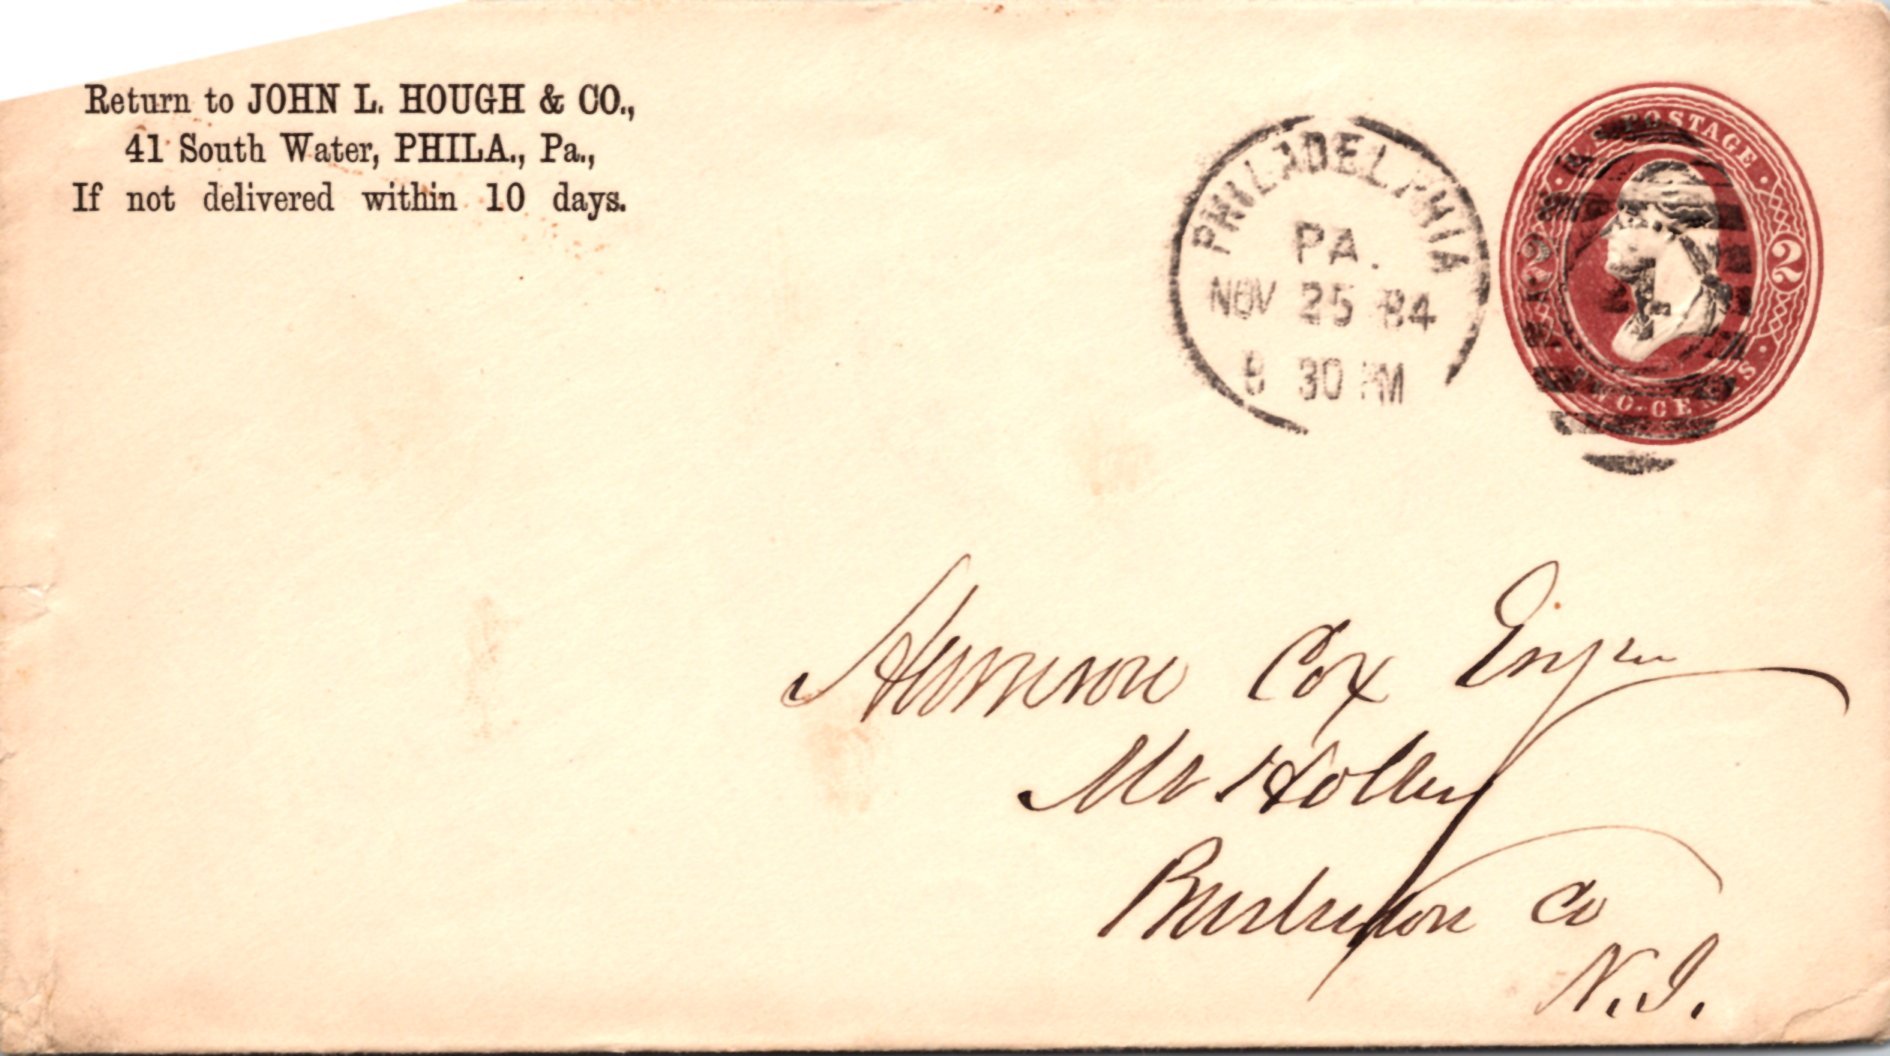 Return to JOHN L. HOUGH & CO.,
41 South Water, PHILA., Pa.,
If not delivered within 10 days.
PHILADELPHIA
PA.
NOV 25 84
8 30 PM
POSTAGE
2 2
TWO CENTS
Harrison Cox Esqre
Mt Holly
Burlington Co
N.J.